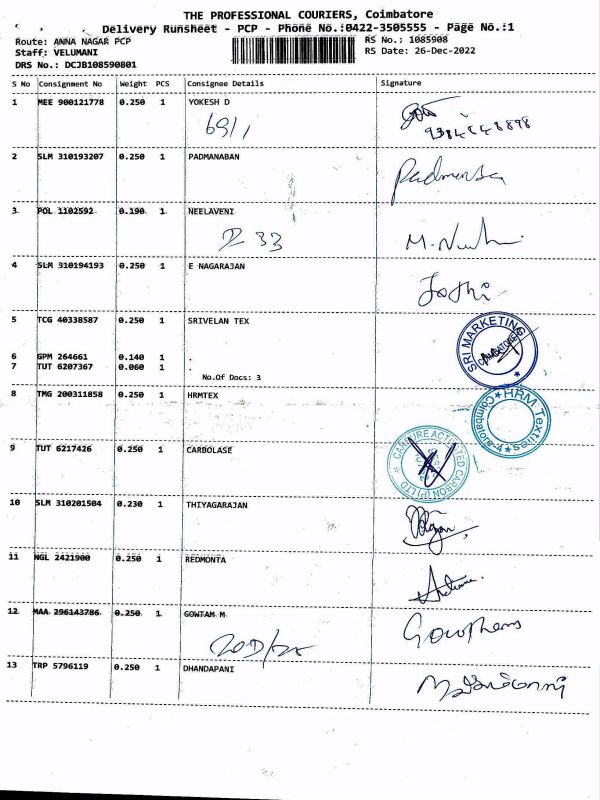 THE PROFESSIONAL COURIERS, Coimbatore
Delivery Runsheet - PCP - Phone No.:0422-3505555 - Page No.:1
Route: ANNA NAGAR PCP
RS No.: 1085908
Staff: VELUMANI
RS Date: 26-Dec-2022
DRS No.: DCJB108590801
S No Consignment No Weight PCS Consignee Details Signature
1 MEE 900121778 0.250 1 YOKESH D
69/1
2 SLM 310193207 0.250 1 PADMANABAN
3 POL 1102592 0.190 1 NEELAVENI
33
4 SLM 310194193 0.250 1 E NAGARAJAN
Jothi
5 TCG 40338587 0.250 1 SRIVELAN TEX
SRI MARKETING
COIMBATORE
6 GPM 264661 0.140 1 .
7 TUT 6207367 0.060 1 .
No.Of Docs: 3
8 TMG 200311858 0.250 1 HRMTEX
HRM Textiles
Coimbatore-4
9 TUT 6217426 0.250 1 CARBOLASE
ACTIVATED CARBON (P) LTD
10 SLM 310201504 0.230 1 THIYAGARAJAN
11 NGL 2421900 0.250 1 REDMONTA
12 MAA 296143786 0.250 1 GOWTAM M
Gowthams
13 TRP 5796119 0.250 1 DHANDAPANI